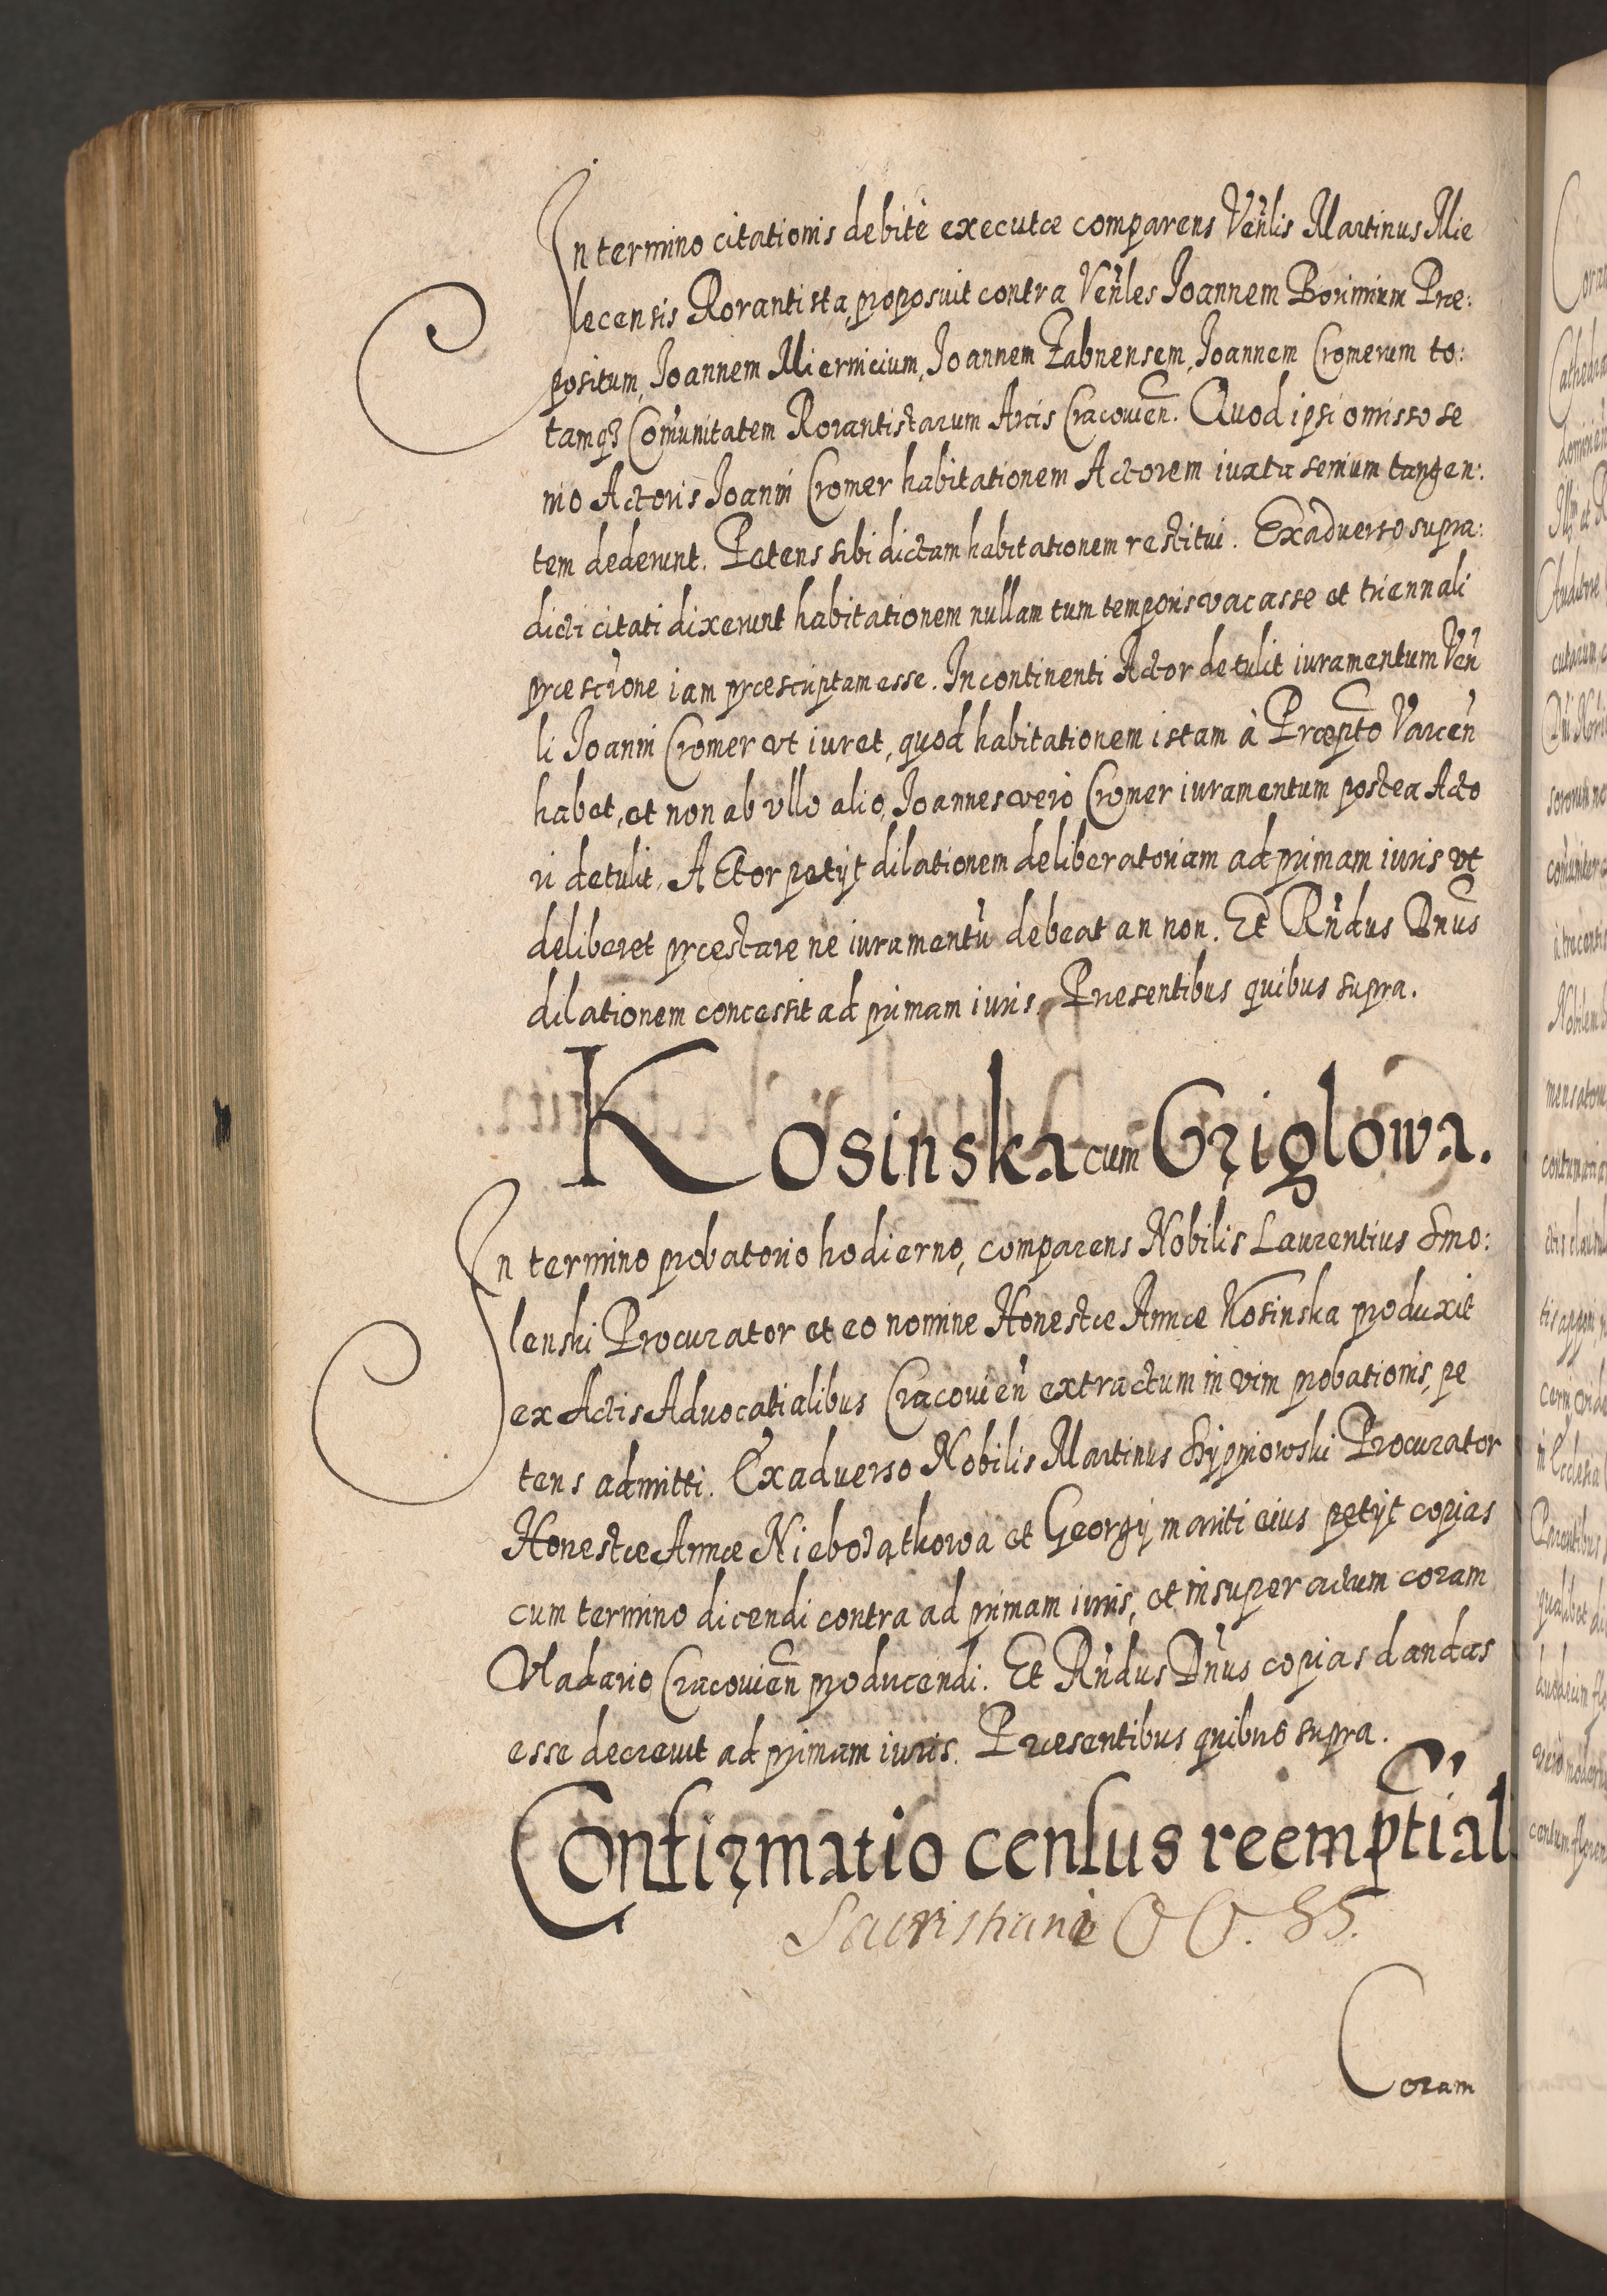 In termino citationis debitè executæ comparens Venlis Martinus Mie
lecensis Rorantista, proposuit contra Venles Joannem Borimium Præ:
positum, Joannem Miernicium, Joannem Zabnensem, Joannem Cromerum to:
tamq3 Comunitatem Rorantistarum Arcis Cracouien. Quod ipsi omisso se
nio Actoris Joanni Cromer habitationem Actorem iuxta senium tangen:
tem dederunt. Petens sibi dictam habitationem restitui. Exaduerso supra:
dicti citati dixerunt habitationem nullam tum temporis vacasse et triennali
præscrione iam præscriptam esse. In continenti Actor detulit iuramentum Ven
li Joanni Cromer vt iuret, quod habitationem istam à Præpto Varcen
habet, et non ab vllo alio, Joannes verò Cromer iuramentum postea Acto
ri detulit. Actor petijt dilationem deliberatoriam ad primam iuris vt
deliberet præstare ne iuramentu debeat an non. Et Rndus Dnus
dilationem concessit ad primam iuris. Præsentibus quibus supra.
Kosinska cum Grziglowa.
In termino probatorio hodierno, comparens Nobilis Laurentius Smo:
lenski Procurator et eo nomine Honestæ Annæ Kosinska produxit
ex Actis Aduocatialibus Cracouien extractum in vim probationis, pe
tens admitti. Exaduerso Nobilis Martinus Procurator
Honestæ Annæ Nieboiątkowa et Georgij mariti eius petijt copias
cum termino dicendi contra ad primam iuris, et insuper actum coram
Vladario Cracouien producendi. Et Rndus Dnus copias dandas
esse decreuit ad primam iuris. Præsentibus quibus supra.
Confirmatio census reemptial
Sacristiani OO. SS.
Coram